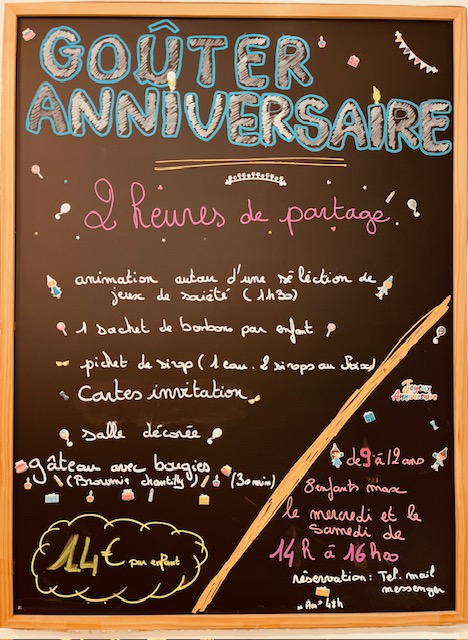 GOÛTER
ANNIVERSAIRE
2 heures de partage
animation autour d'une séléction de
jeux de société (1h30)
1 sachet de bonbons par enfant
pichet de sirop (1 eau. 2 sirops au choix)
Cartes invitation
Salle décorée
gâteau avec bougies
(Brownie chantilly) (30min)
14€ par enfant
Joyeux
Anniversaire
de 9 à 12 ans
8 enfants max
le mercredi et le
samedi de
14h à 16h00
réservation : Tel. mail
messenger
48h